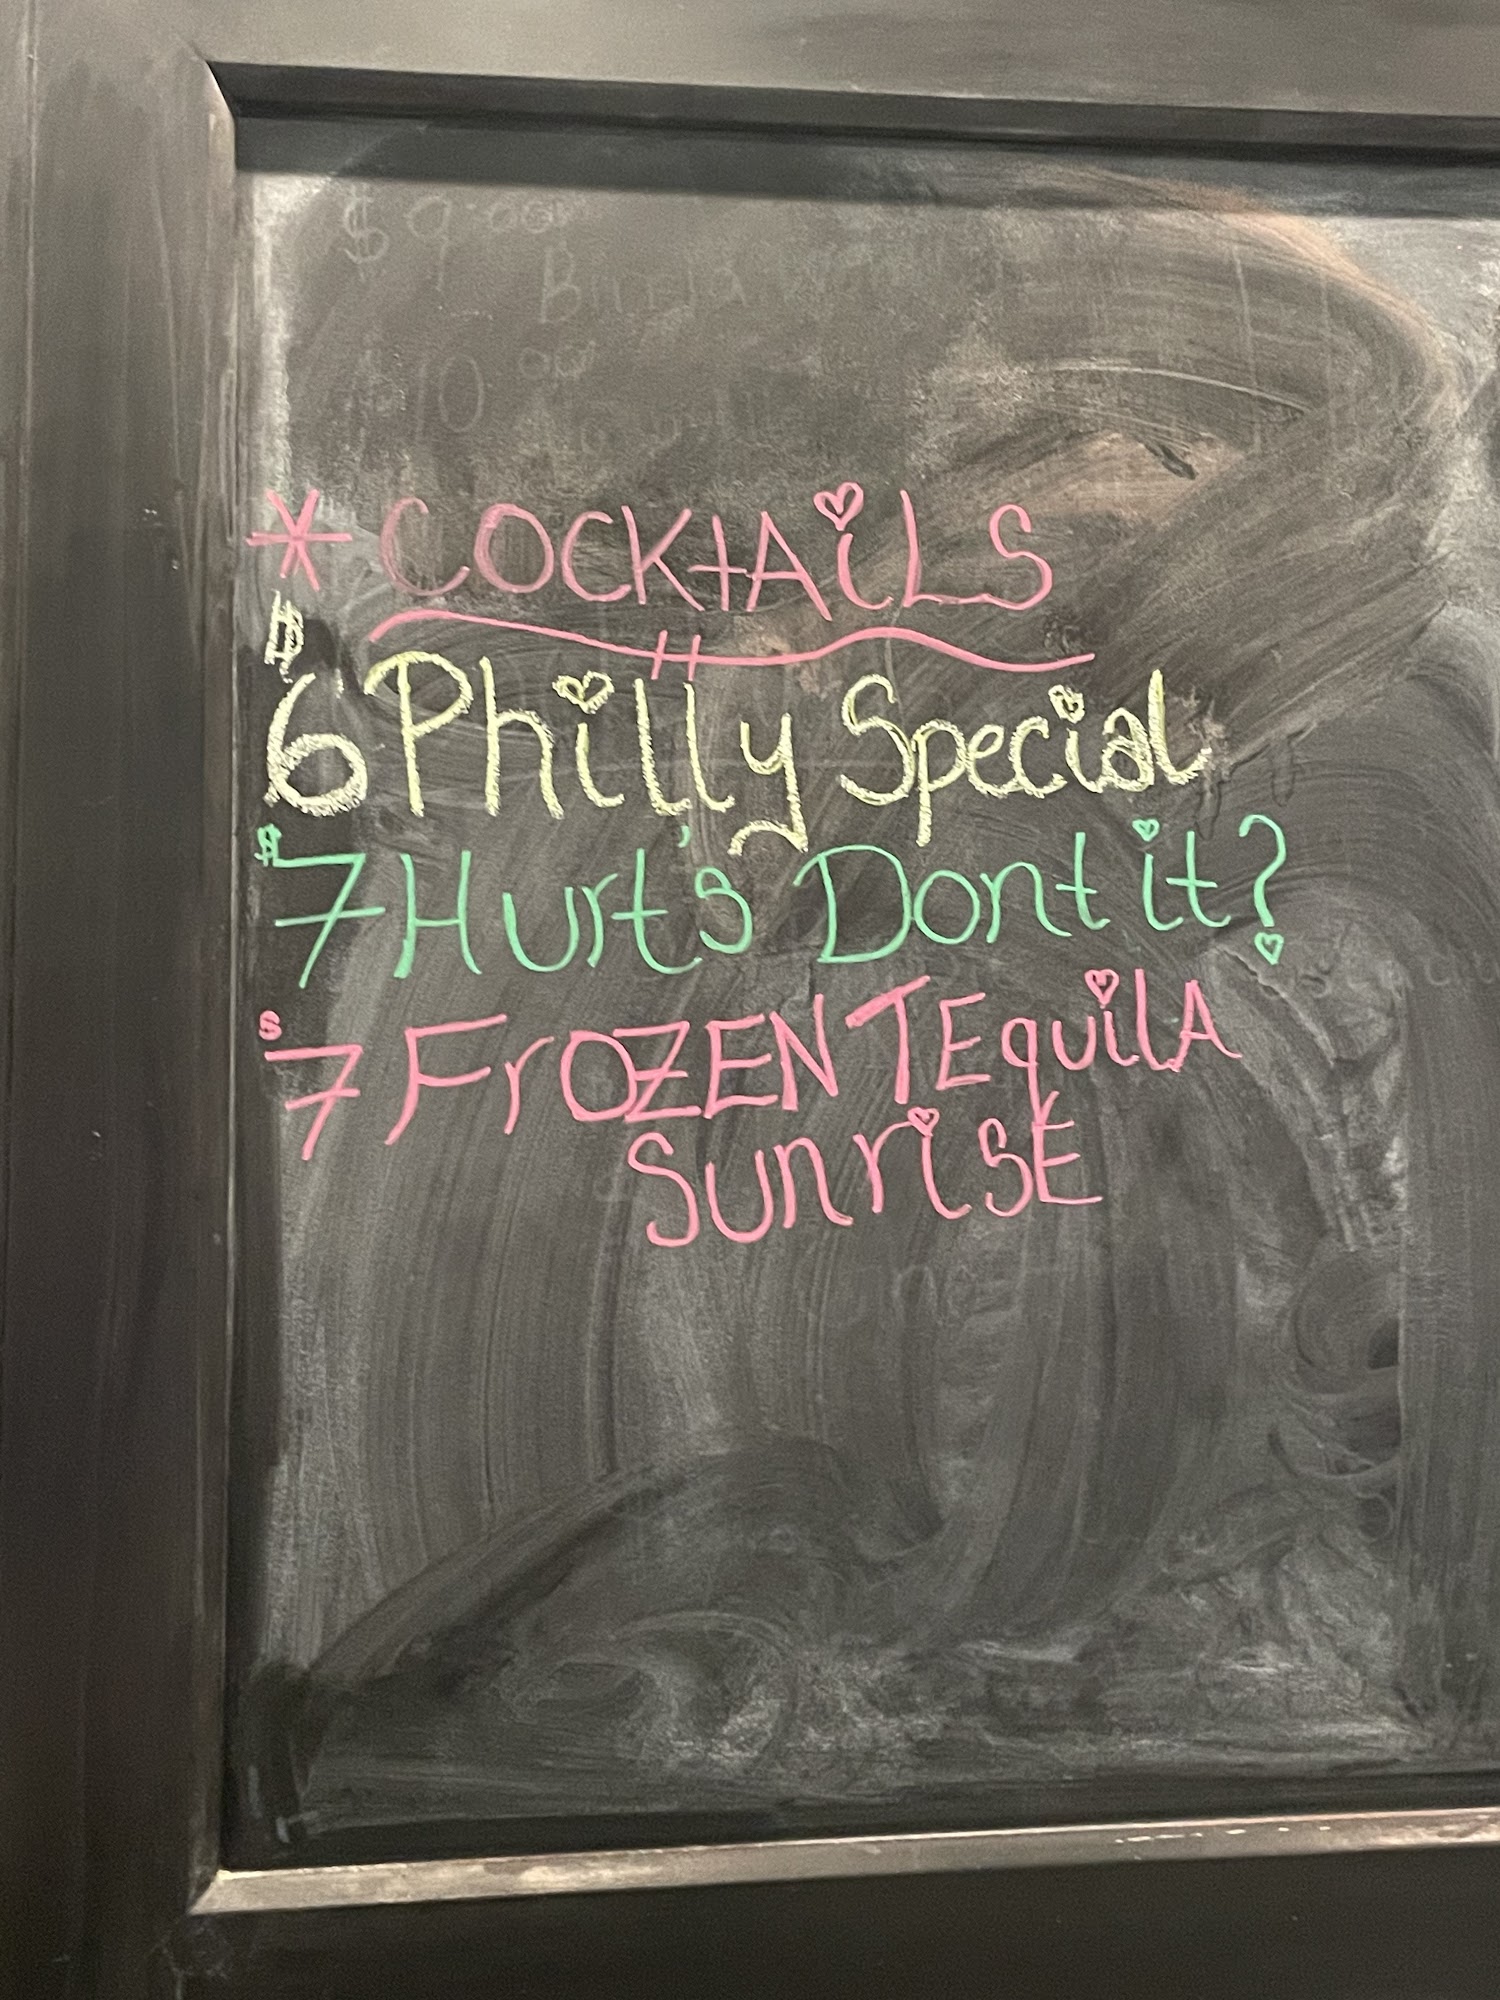 * COCKtAiLS
$6 Philly Special
$7 Hurt's Dont it?
$7 FrOZEN TEquilA
SunriSE